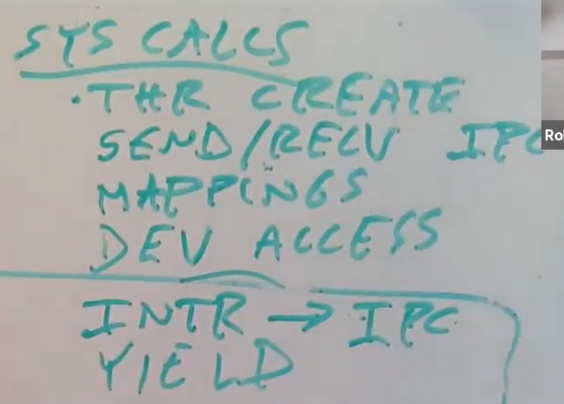 SYS CALLS
· THR CREATE
SEND/RECV IPC
MAPPINGS
DEV ACCESS
INTR → IPC
YIELD